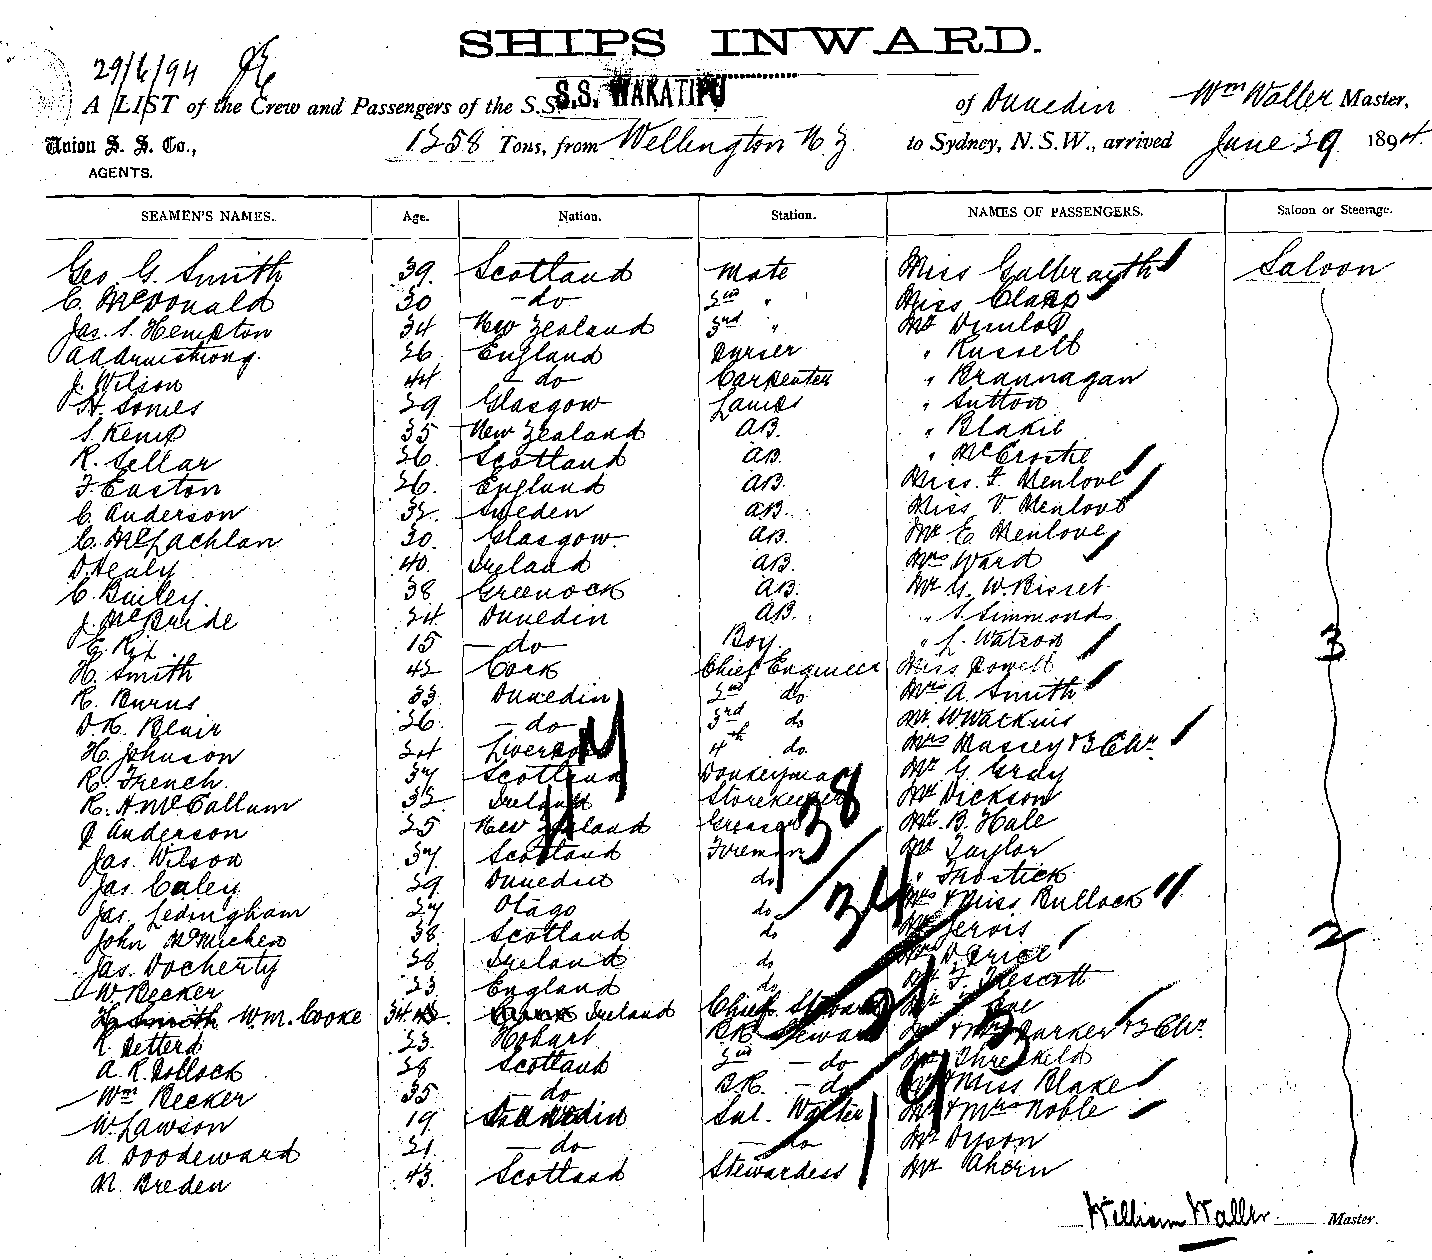 SHIPS INWARD.
29/6/94
A LIST of the Crew and Passengers of the S.S. S.S. WAKATIPU of Dunedin Wm Waller Master,
Union S. S. Co., 1258 Tons, from Wellington N.Z to Sydney, N.S.W., arrived June 29 1894.
AGENTS.
SEAMEN'S NAMES. Age. Nation. Station. NAMES OF PASSENGERS. Saloon or Steerage.
Geo G. Smith 39 Scotland Mate Miss Galbrayth Saloon
C. McDonald 30 - do 2nd " Miss
Jas. S. Hempton 34 New Zealand 3rd " Mr Dunlop
A A Armstrong. 26 England Purser " Russell
J. Wilson 44 - do Carpenter " Brannagan
H. Somes 29 Glasgow Lamps " Sutton
S. Kemp 35 New Zealand AB. " Blakie
R. Sellar 26 Scotland AB. " McCroskie
F. Easton 26. England AB. Miss. F Menlove
C. Anderson 32 Sweden AB. Miss V. Menlove
C. McLachlan 30 Glasgow AB. Mr E Menlove
D. Healy 40. Ireland AB. Mrs Ward
C. Bailey. 38 Greenock AB. Mr G. W. Bisset
J. McBride 24 Dunedin AB. " S. Simmonds
E. Rix 15 - do - Boy " L. Watson 3
H. Smith 42 Cork Chief Engineer Miss Powell
R. Burns 33 Dunedin 2nd do Mrs A. Smith
D. R. Blair 26 - do - 3rd do Mr. W Watkins
H. Johnson 24 Liverpool 4th do. Mrs Massey & 3 Chn
R. French 37 Scotland Donkeyman Mr G. Gray
R. H. McCallum 32 Ireland Storekeeper Mr Dickson
P Anderson 25 New Zealand Greaser Mr. B. Hale
Jas. Wilson 37 Scotland Foreman Mr Taylor
Jas. Caley 29 Dunedin do " Trostick
Jas. Ledingham 27 Otago do Mrs & Miss Bullock
John McMichen 38 Scotland do Jervis 2
Jas. Docherty 28 Ireland do D. Price
W Becker 23 England do F. Trescott
H. Smith W.m. Cooke 34 Ireland Chief Steward
R. Petterd 23 Hobart B.R. Steward & Mrs Parker & 3 Chn
A. R. Pollock 28 Scotland 2nd - do Threlkeld
Wm Becker 35 - do B.R. - do & Miss Blake
W. Lawson 19 Dunedin Sal. Waiter Mr & Mrs Noble
A Doodeward 21 - do - do Mr Dyson
M. Breden 43. Scotland Stewardess Mr Ahern
114
138
/34
21
193
William Waller Master.